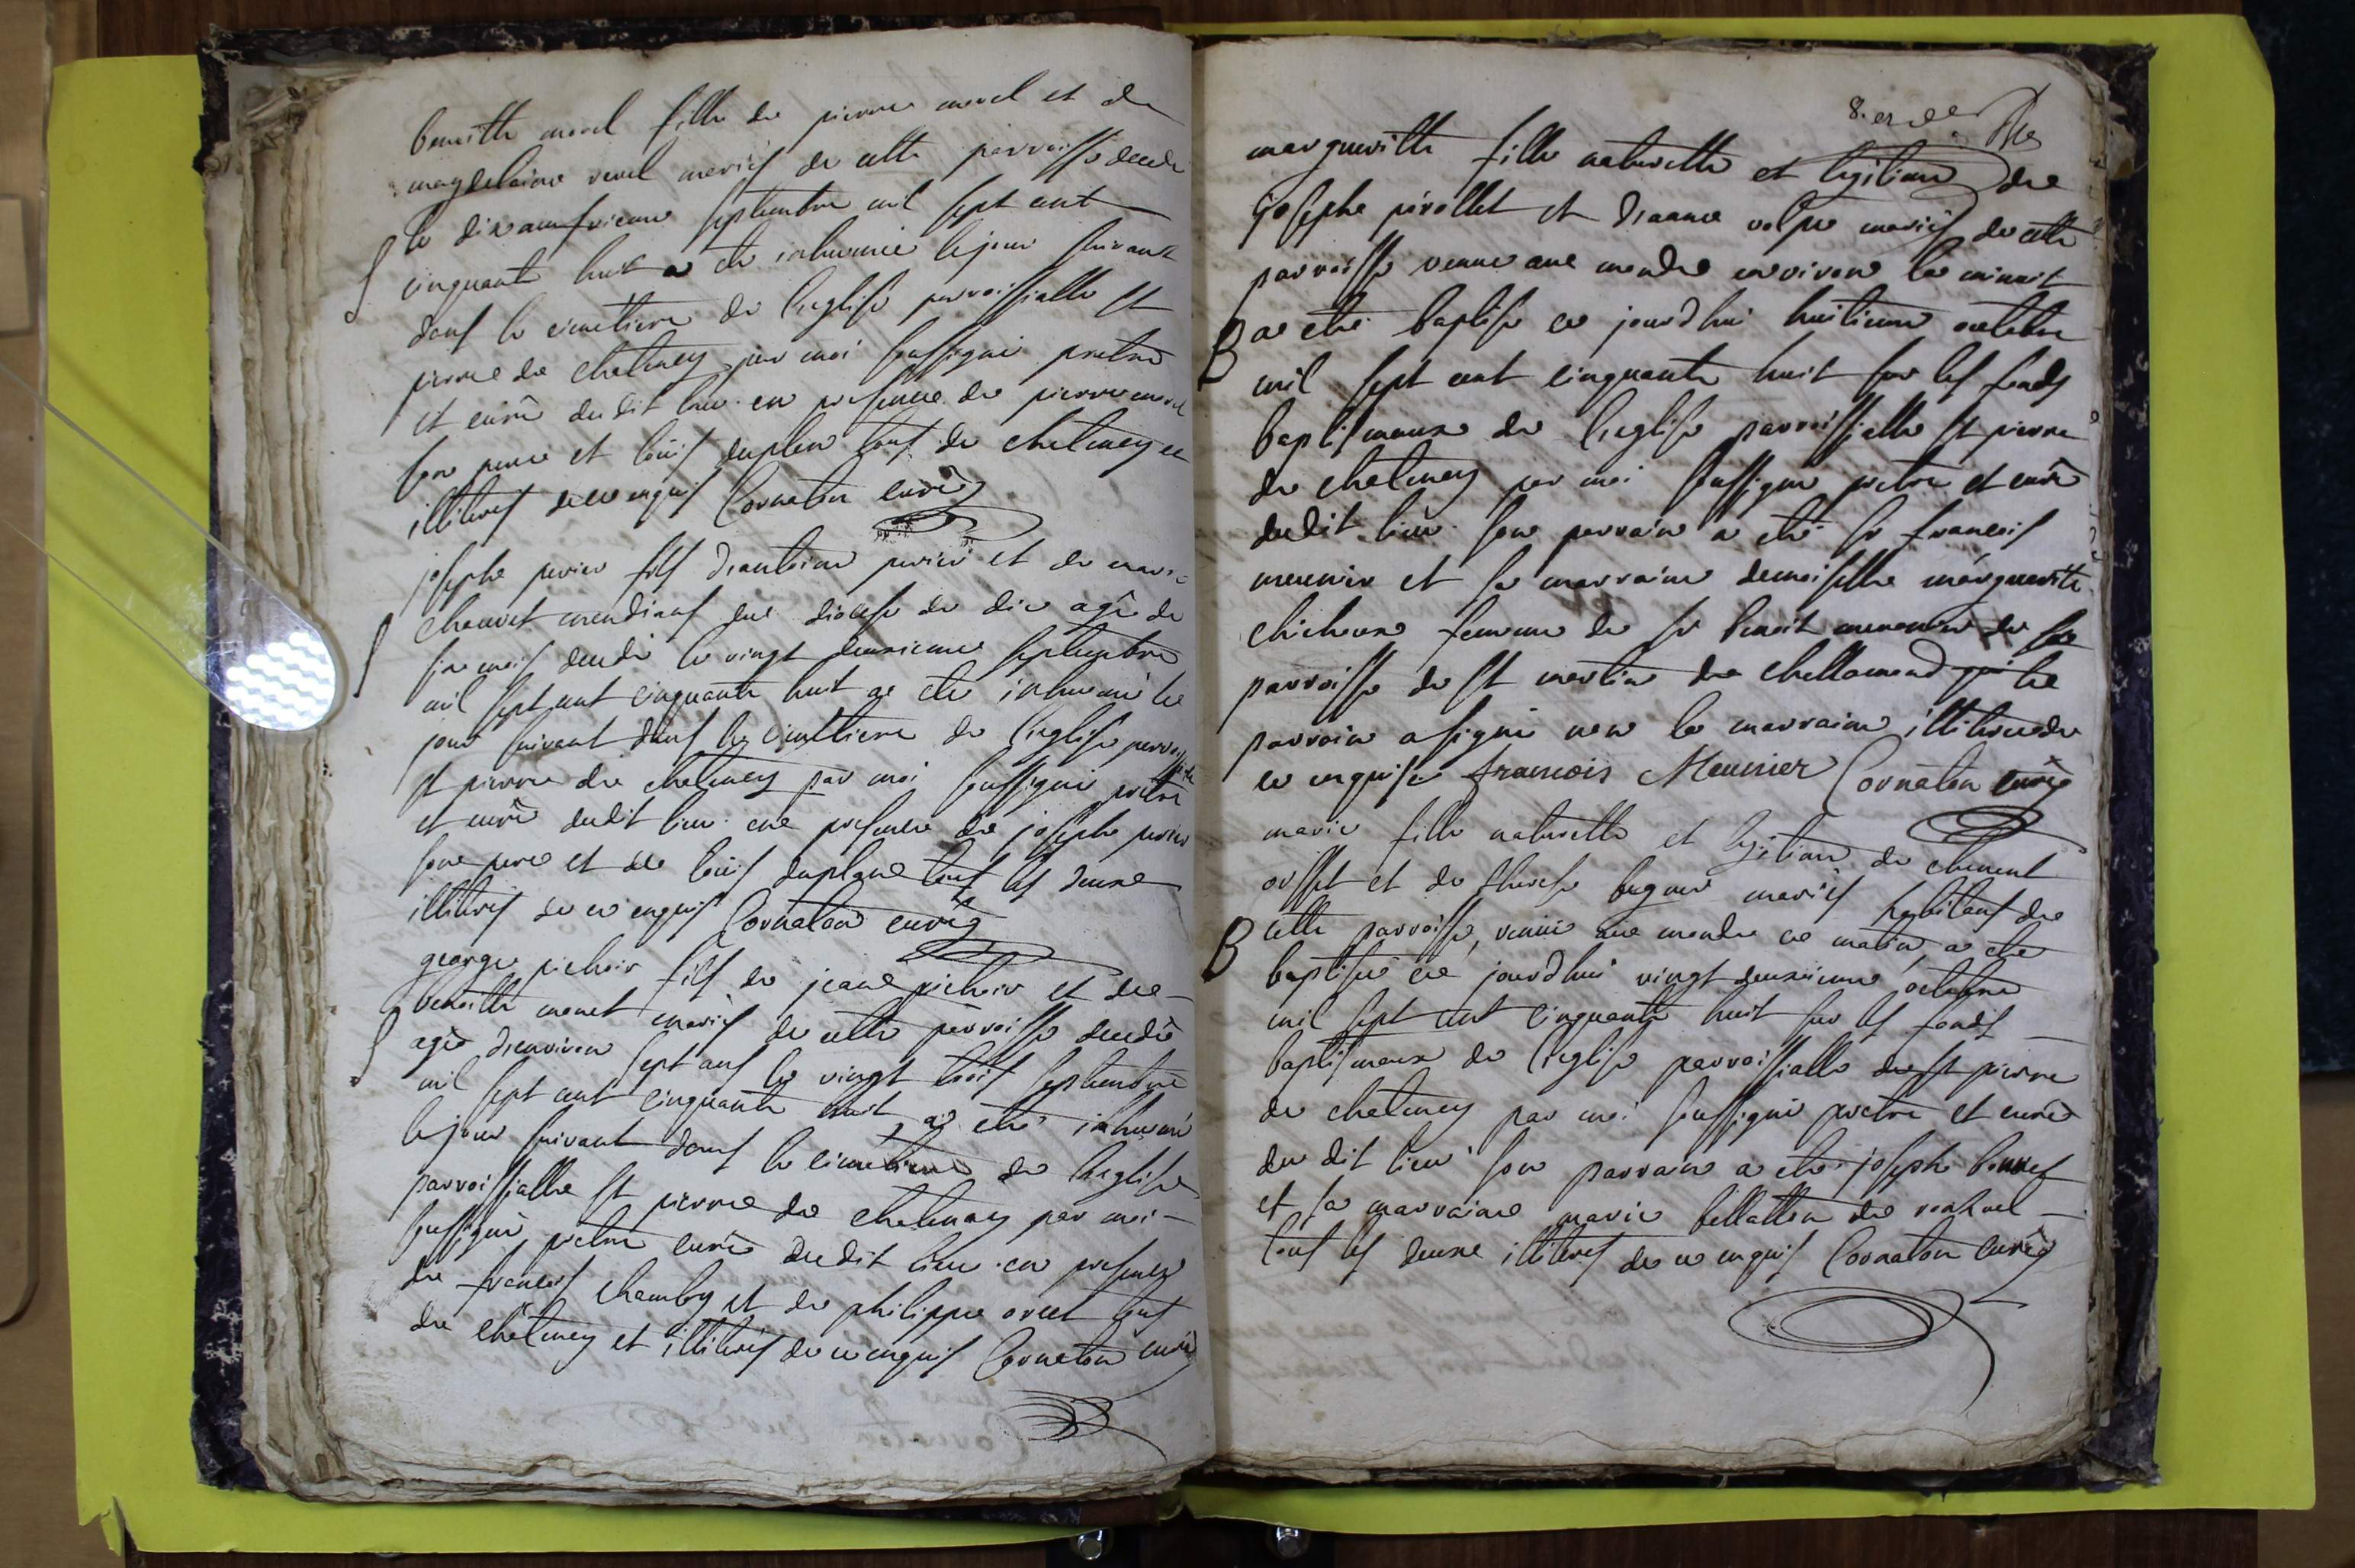 benoitte morel fille de pierre morel et de
magdelaine revel mariés de cette parroisse decede
le dixaneufvieme septembre mil sept cent
cinquante huit a eté inhumée le jour suivant
dans le cimetiere de l'eglise parroissialle st
pierre de chatenay par moi soussigné pretre
et curé dudit lieu en presence de pierre morel
son pere et loüis duplan tous de chatenay et
illiterés de ce enquis Cornaton curé
josephe perier fils d'antoine perier et de marie
chauvet mendians du diocese de die agé de
six mois decedé le vingt deuxieme septembre
mil sept cent cinquante huit a eté inhumé le
jour suivant dans le cimetiere de l'eglise
st pierre de chatenay par moi soussigné pretre
et curé dudit lieu en presence de josephe perier
son pere et de loüis duplan tous les deux
illiterés de ce enquis Cornaton curé
george pichoir fils de jean pichoir et de
benoitte monet mariés de cette parroisse decedé
agé d'environ sept ans le vingt trois septembre
mil sept cent cinquante huit a eté inhumé
le jour suivant dans le cimetiere de l'eglise
parroissialle st pierre de chatenay par moi
soussigné pretre curé dudit lieu en presence
de francois chamby et de philippe orset tous
de chatenay et illiterés de ce enquis Cornaton curé
margueritte fille naturelle et legitime de
josephe pirollet et d'anne volpe mariés de cette
parroisse venue au monde environ la minuit
B a eté baptisé ce jourd'hui huitieme octobre
mil sept cent cinquante huit sur les fonds
baptismaux de l'eglise parroissialle st pierre
de chatenay par moi soussigné pretre et curé
dudit lieu son parrain a eté sr francois
meunier et sa marraine demoiselle margueritte
femme de sr benoit meunier de
parroisse de st martin de chellamond le
parrain a signé non la marraine illiteree de
ce enquise francois Meunier Cornaton curé
marie fille naturelle et legitime de clement
orsset et de therese mariés habitans de
B cette parroisse, venue au monde ce matin, a eté
baptisée ce jourd'hui vingt deuxieme octobre
mil sept cent cinquante huit sur les fonds
baptismaux de l'eglise parroissialle de st pierre
de chatenay par moi soussigné pretre et curé
du dit lieu son parrain a eté joseph
et sa marraine marie de
tous les deux illiterés de ce enquis Cornaton curé